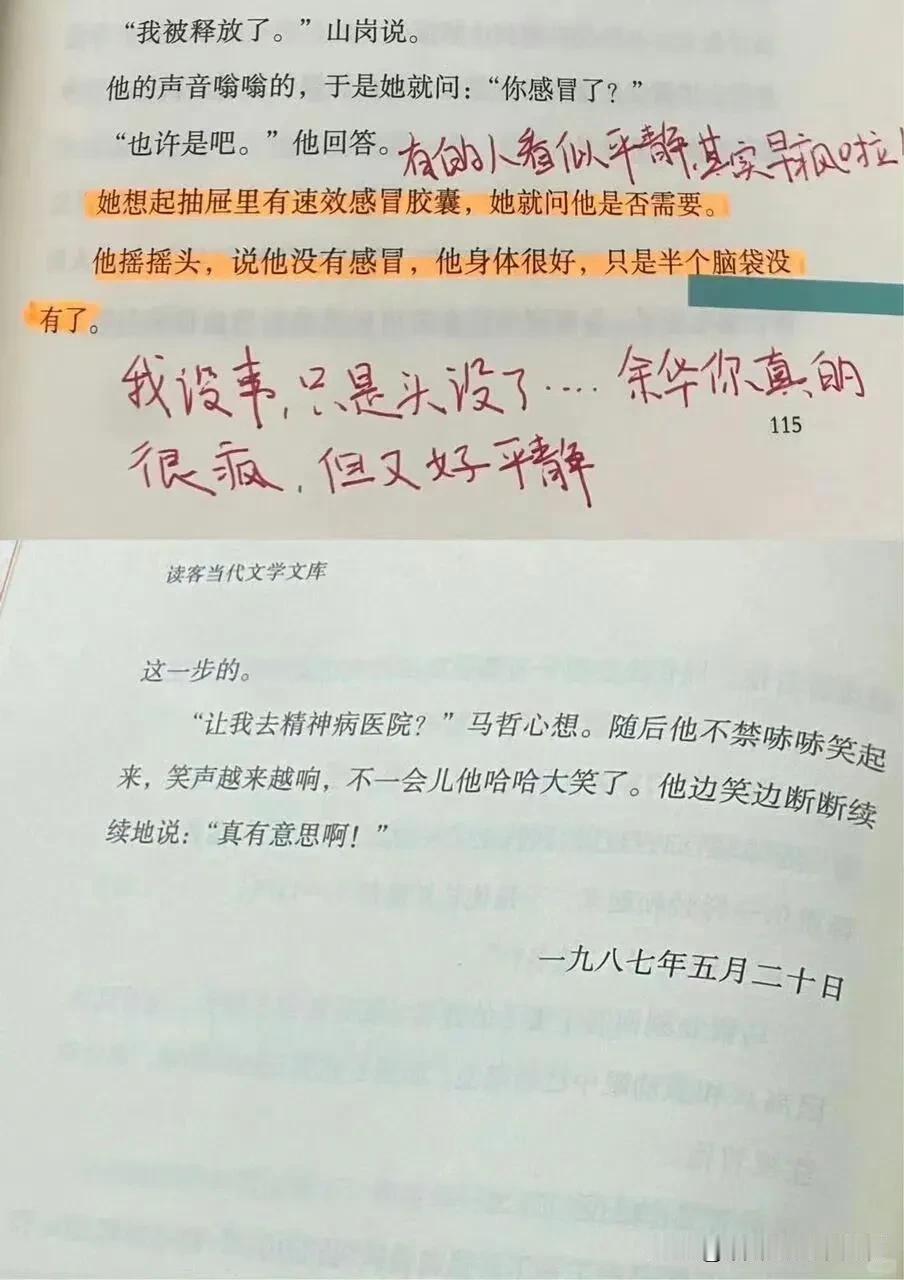 “我被释放了。”山岗说。
他的声音嗡嗡的，于是她就问：“你感冒了？”
“也许是吧。”他回答。
有的人看似平静，其实早疯啦！
她想起抽屉里有速效感冒胶囊，她就问他是否需要。
他摇摇头，说他没有感冒，他身体很好，只是半个脑袋没
有了。
我没事，只是头没了…. 余华你真的
115
很疯，但又好平静
读客当代文学文库
这一步的。
“让我去精神病医院？”马哲心想。随后他不禁哧哧笑起
来，笑声越来越响，不一会儿他哈哈大笑了。他边笑边断断续
续地说：“真有意思啊！”
一九八七年五月二十日